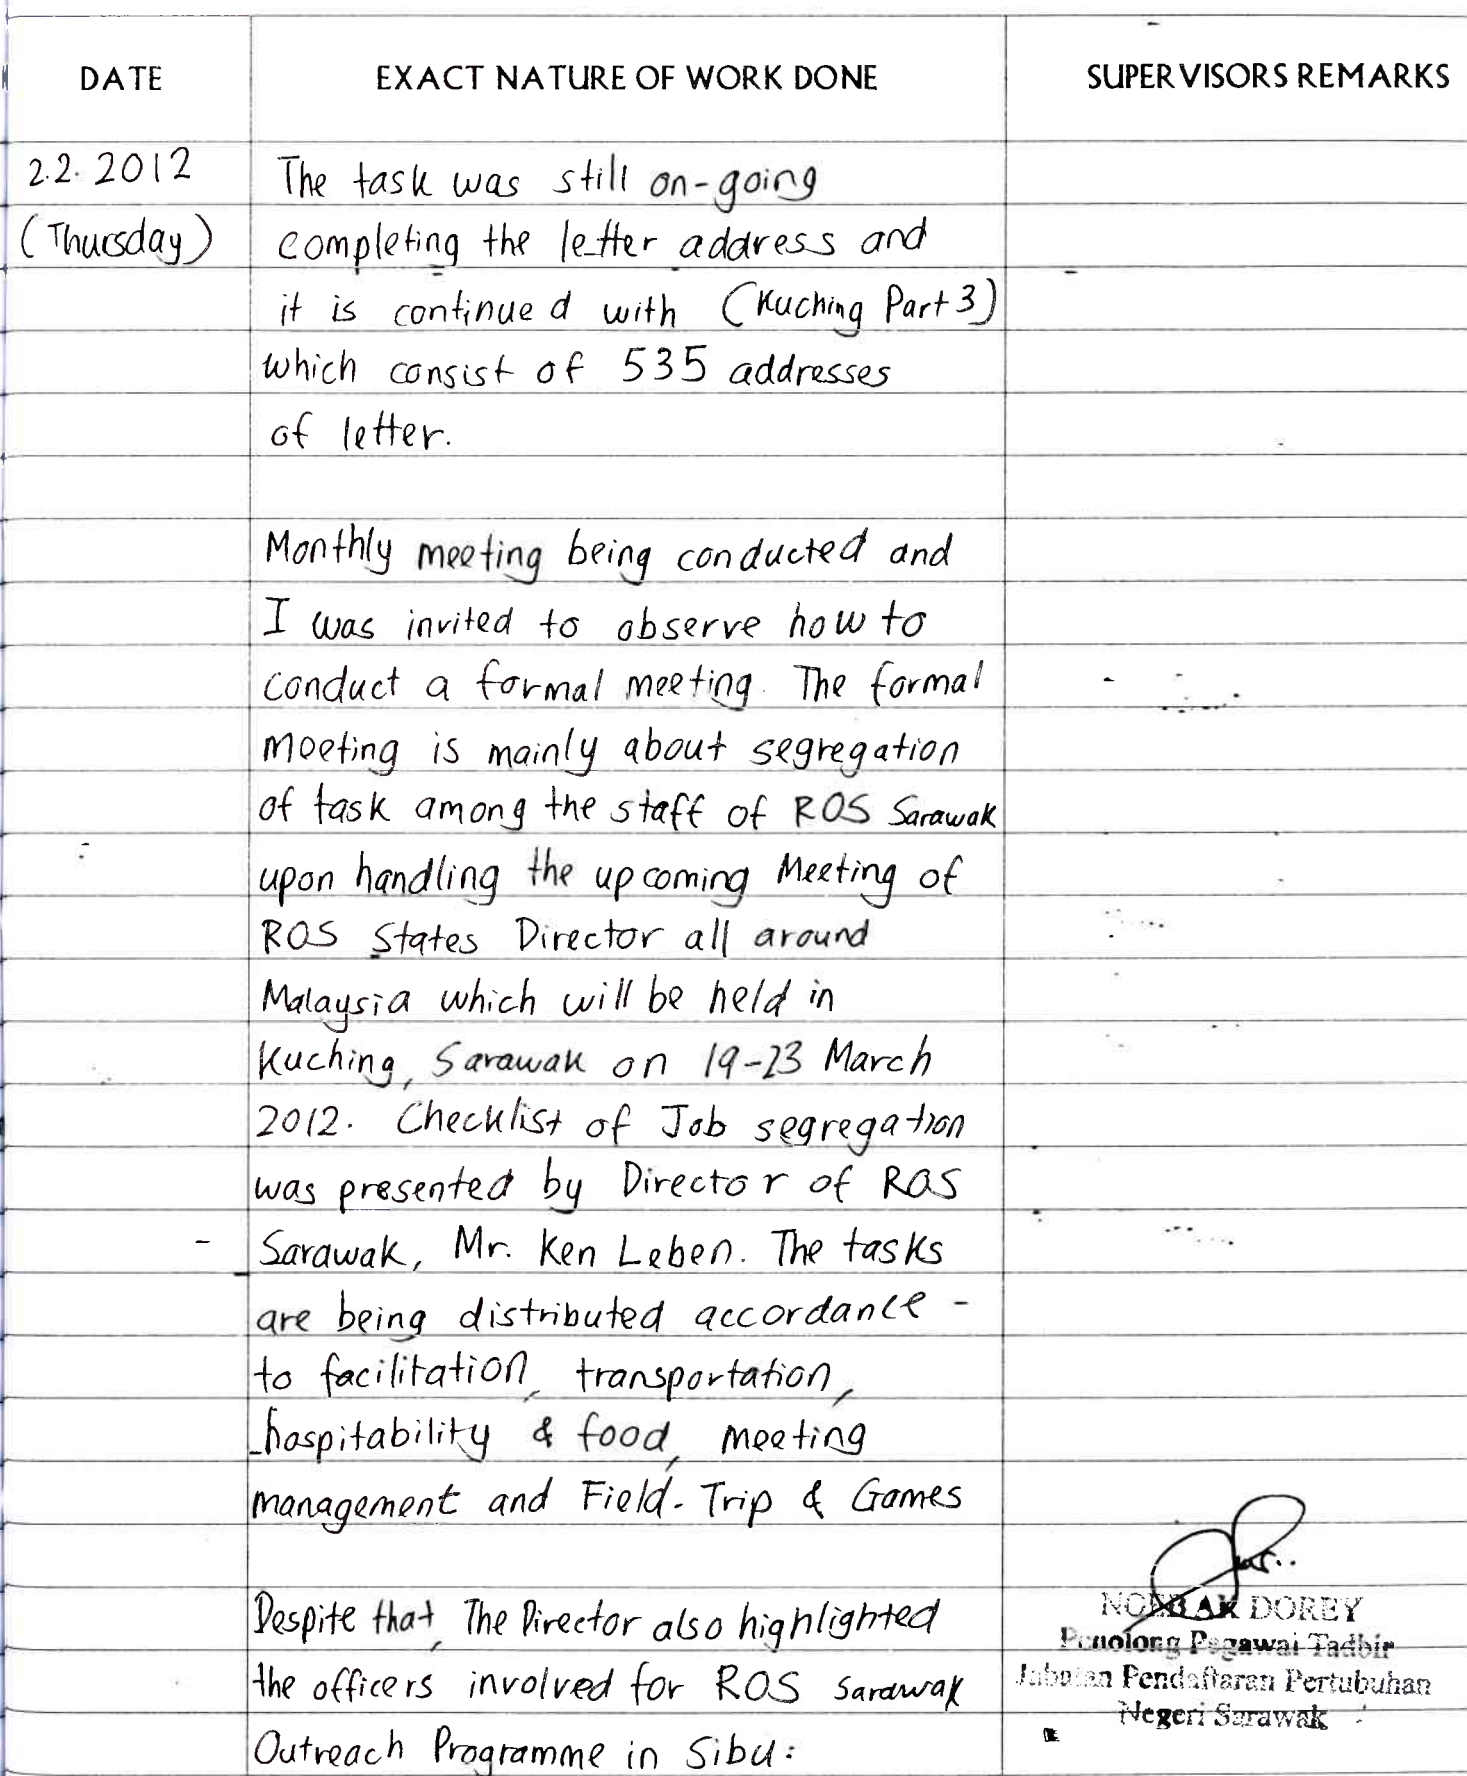 DATE EXACT NATURE OF WORK DONE SUPERVISORS REMARKS
2.2.2012 The task was still on-going
(Thursday) completing the letter address and
it is continued with (Kuching Part 3)
which consist of 535 addresses
of letter.
Monthly meeting being conducted and
I was invited to observe how to
conduct a formal meeting. The formal
meeting is mainly about segregation
of task among the staff of ROS Sarawak
upon handling the upcoming Meeting of
ROS States Director all around
Malaysia which will be held in
Kuching, Sarawak on 19-23 March
2012. Checklist of Job segregation
was presented by Director of ROS
Sarawak, Mr. Ken Leben. The tasks
are being distributed accordance -
to facilitation, transportation,
hospitability & food, meeting
management and Field-Trip & Games
Despite that, The Director also highlighted
the officers involved for ROS Sarawak
Outreach Programme in Sibu:
DOREY
Penolong Pegawai Tadbir
Jabatan Pendaftaran Pertubuhan
Negeri Sarawak